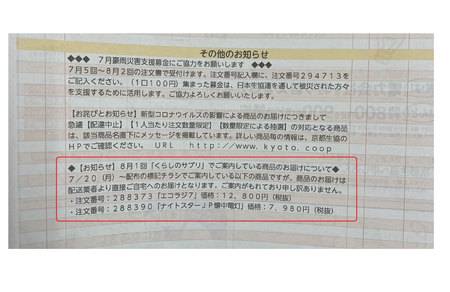 その他のお知らせ
◆◆◆ 7月豪雨災害支援募金にご協力をお願いします ◆◆◆
7月5回~8月2回の注文書で受付けます。注文番号記入欄に、注文番号294713を
ご記入ください。(1口100円)集まった募金は、日本生協連を通して被災された方々
を支援するために活用します。ご協力よろしくお願いいたします。
【お詫びとお知らせ】新型コロナウイルスの影響による商品のお届けにつきまして
急遽【配達中止】【1人当たり注文数量限定】【数量限定による抽選】の対応となる商品
は、該当商品名直下にメッセージを掲載しています。詳しい商品毎の情報は、京都生協の
HPでご確認ください。 URL http://www.kyoto.coop
◆【お知らせ】8月1回『くらしのサプリ』でご案内している商品のお届けについて◆
7/20(月)~配布の標記チラシでご案内している以下の商品ですが、商品のお届けは
配送業者より直接ご自宅へのお届けとなります。ご案内がもれており申し訳ありません。
・注文番号:288373「エコラジ7」価格:12,800円(税抜)
・注文番号:288390「ナイトスターJP懐中電灯」価格:7,980円(税抜)